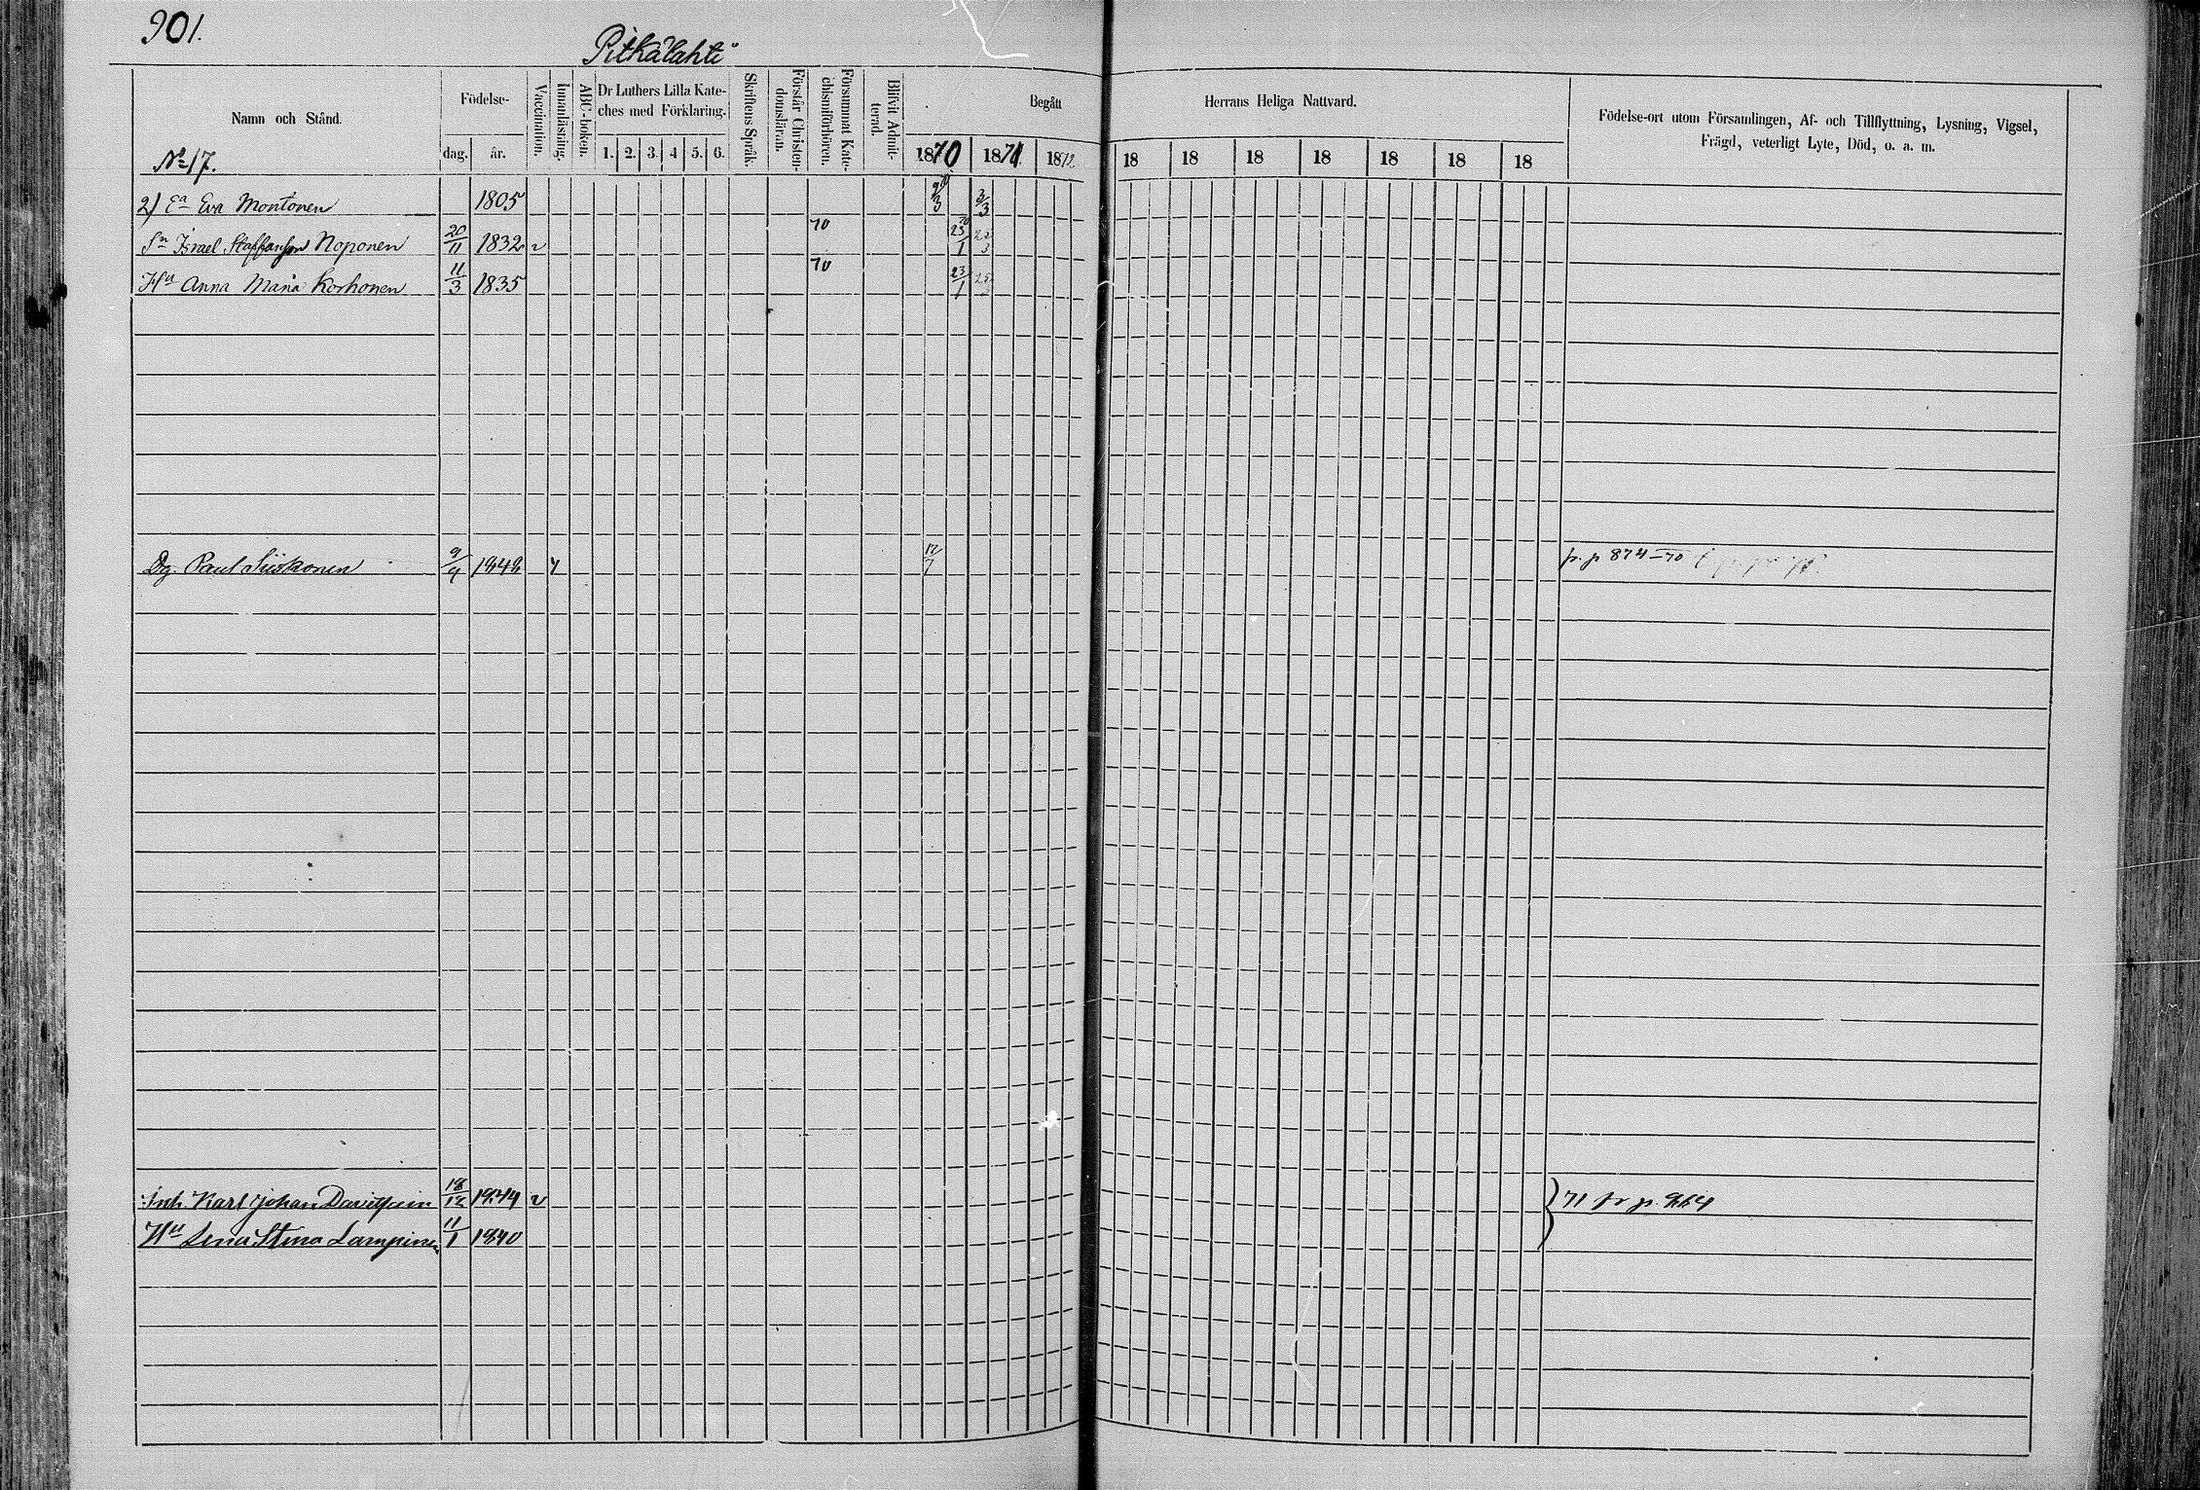 901.
Pitkälahti
Namn och Stånd.
Födelse-
dag. år.
Vaccination.
Innanläsning.
ABC-boken.
Dr Luthers Lilla Kate-
ches med Förklaring.
1. 2. 3. 4 5. 6.
Skriftens Språk.
Förstår Christen-
domsläran.
Försummat Kate-
chismiförhören.
Blifvit Admit-
terad.
Begått Herrans Heliga Nattvard.
1870 1871 1872 18 18 18 18 18 18 18
Födelse-ort utom Församlingen, Af- och Tillflyttning, Lysning, Vigsel,
Frägd, veterligt Lyte, Död, o. a. m.
No 17.
2) Ea Eva Montonen 1805 3/3
Sn Israel Staffansson Noponen 20/11 1832 v 70 23/1
Hu Anna Maria Korhonen 11/3 1835 70 23/1
Dg. Paul Siiskonen 9/4 1848 17/7 fr. p 874-70
Inh. Karl Johan Davidsson 18/12 1844 v 71 fr p. 964
Hu Lena Stina Lampinen 11/1 1840